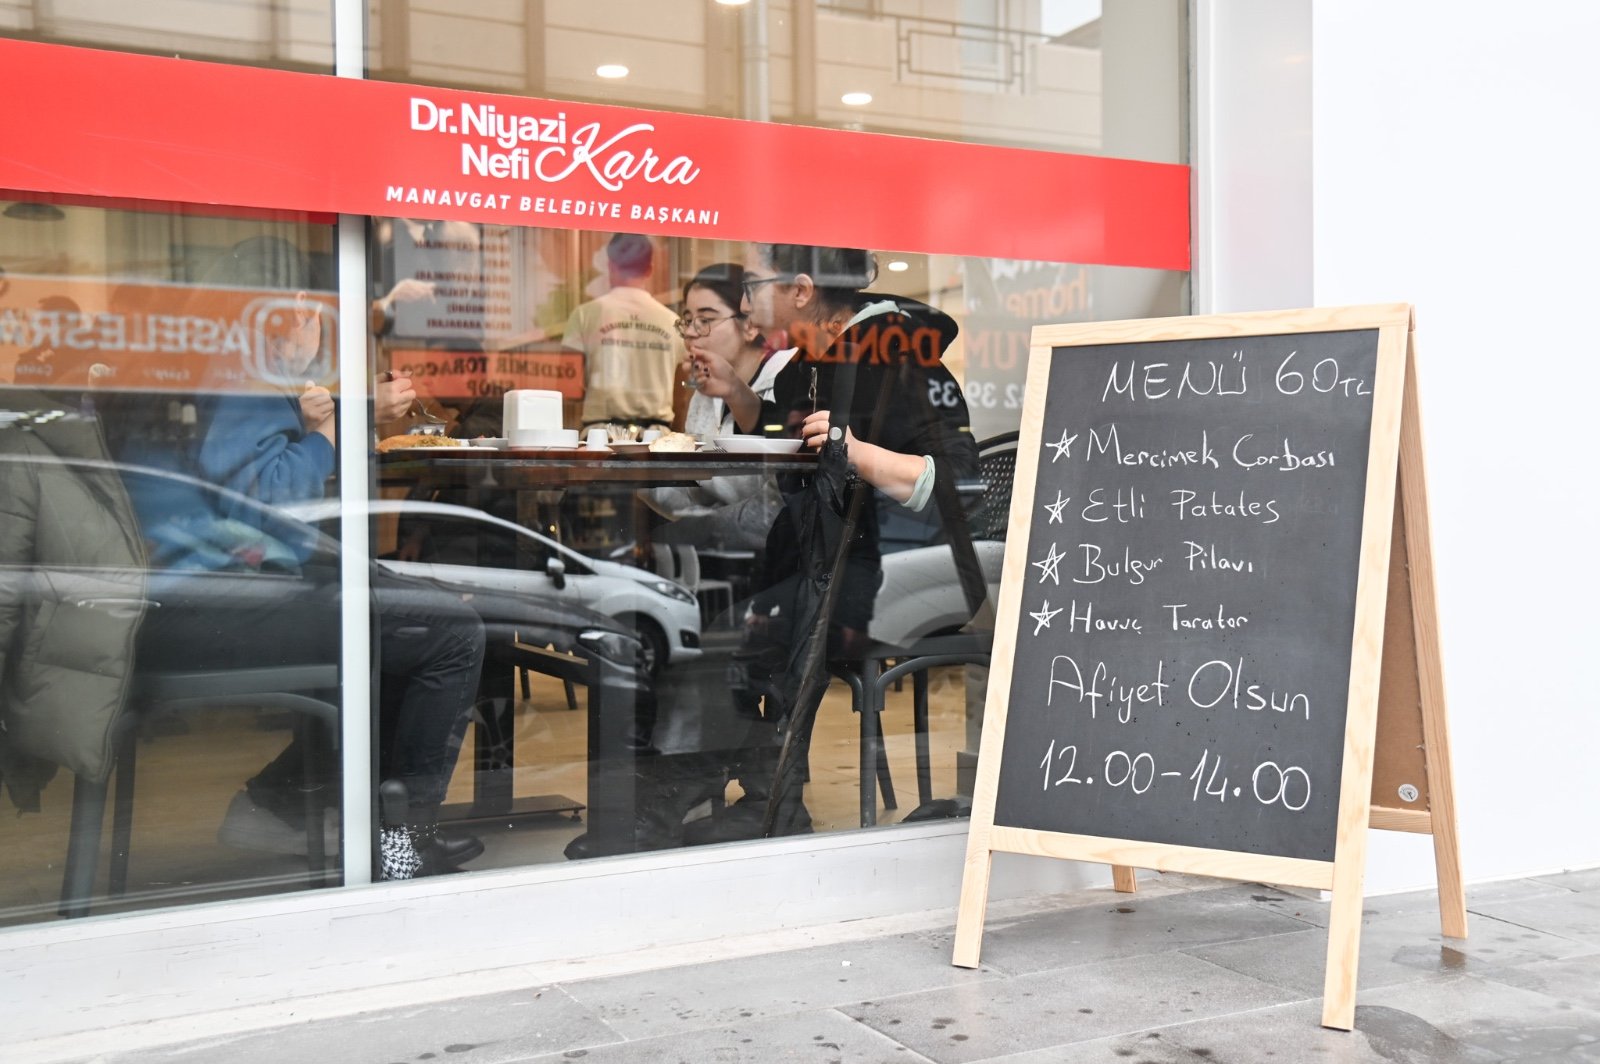 Dr. Niyazi
Nefi Kara
MANAVGAT BELEDİYE BAŞKANI
ASELLESRA
ÖZDEMİR TOBACCO
SHOP
DÖNER
home
YUM
MENÜ 60TL
Mercimek Çorbası
Etli Patates
Bulgur Pilavı
Havuç Tarator
Afiyet Olsun
12.00-14.00